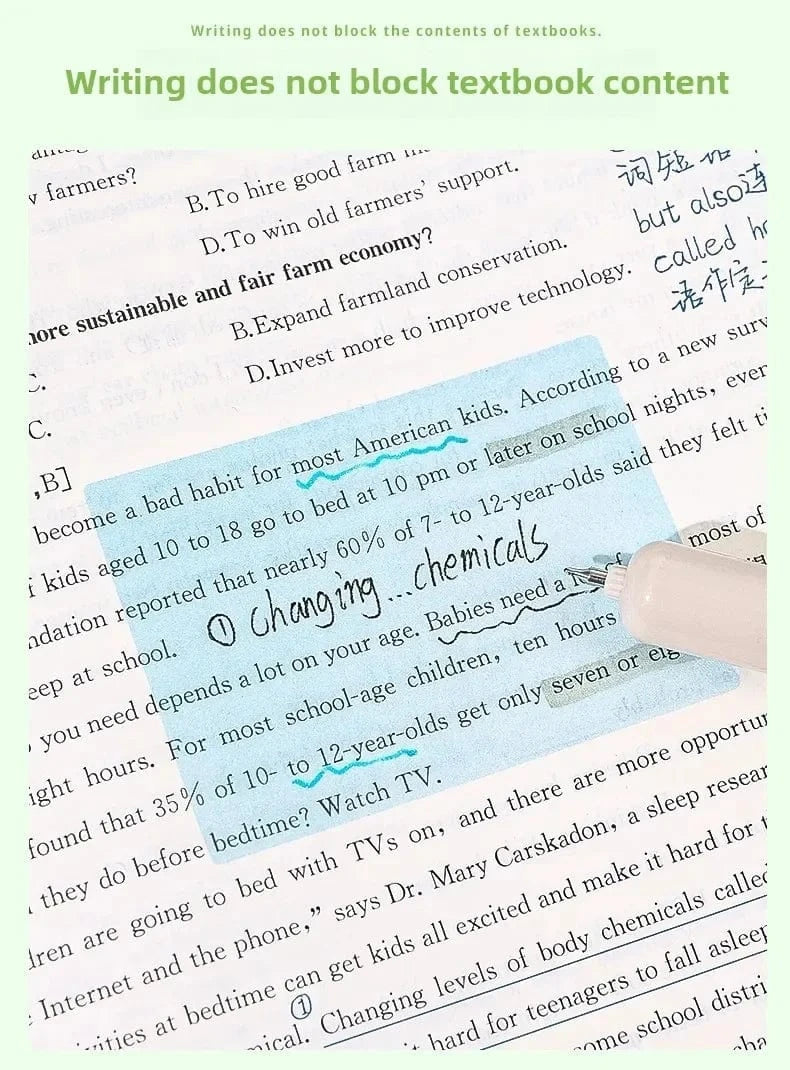 Writing does not block the contents of textbooks.
Writing does not block textbook content
farmers?
B.To hire good farm
D.To win old farmers' support.
more sustainable and fair farm economy?
B.Expand farmland conservation.
D.Invest more to improve technology.
C.
C.
,B]
词短语
but also连
called
语作定
become a bad habit for most American kids. According to a new
kids aged 10 to 18 go to bed at 10 pm or later on school nights, even
reported that nearly 60% of 7- to 12-year-olds said they felt
at school.
① changing...chemicals
you need depends a lot on your age. Babies need a most of
hours. For most school-age children, ten hours
found that 35% of 10- to 12-year-olds get only seven or
they do before bedtime? Watch TV.
are going to bed with TVs on, and there are more
Internet and the phone," says Dr. Mary Carskadon, a sleep
at bedtime can get kids all excited and make it hard for
① Changing levels of body chemicals called
hard for teenagers to fall asleep
school